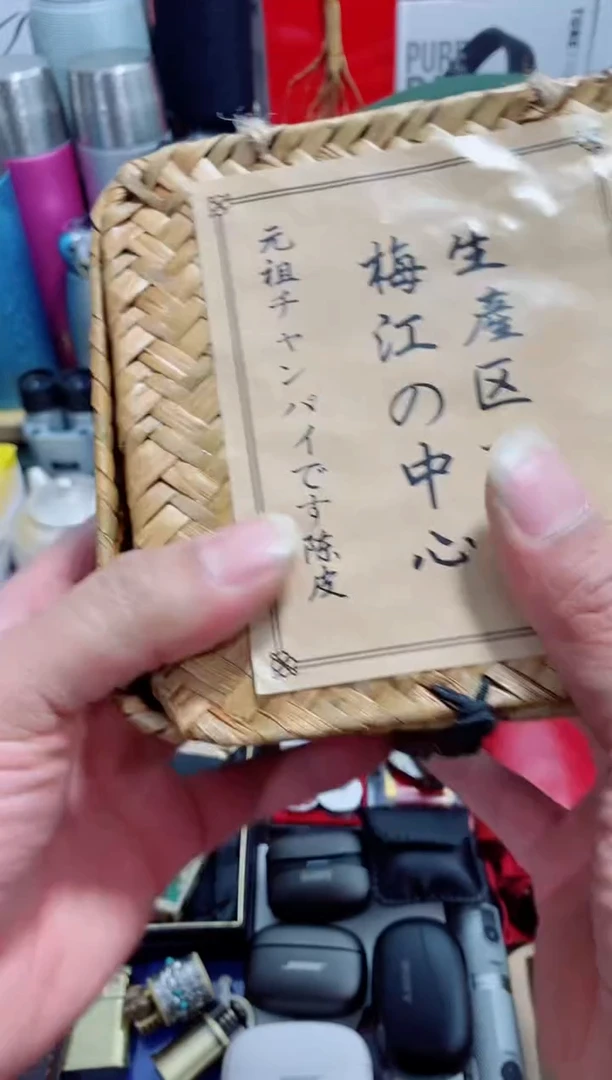 生産区
梅江の中心
元祖チャンパイです陳皮
PURE
BOSE
SONY